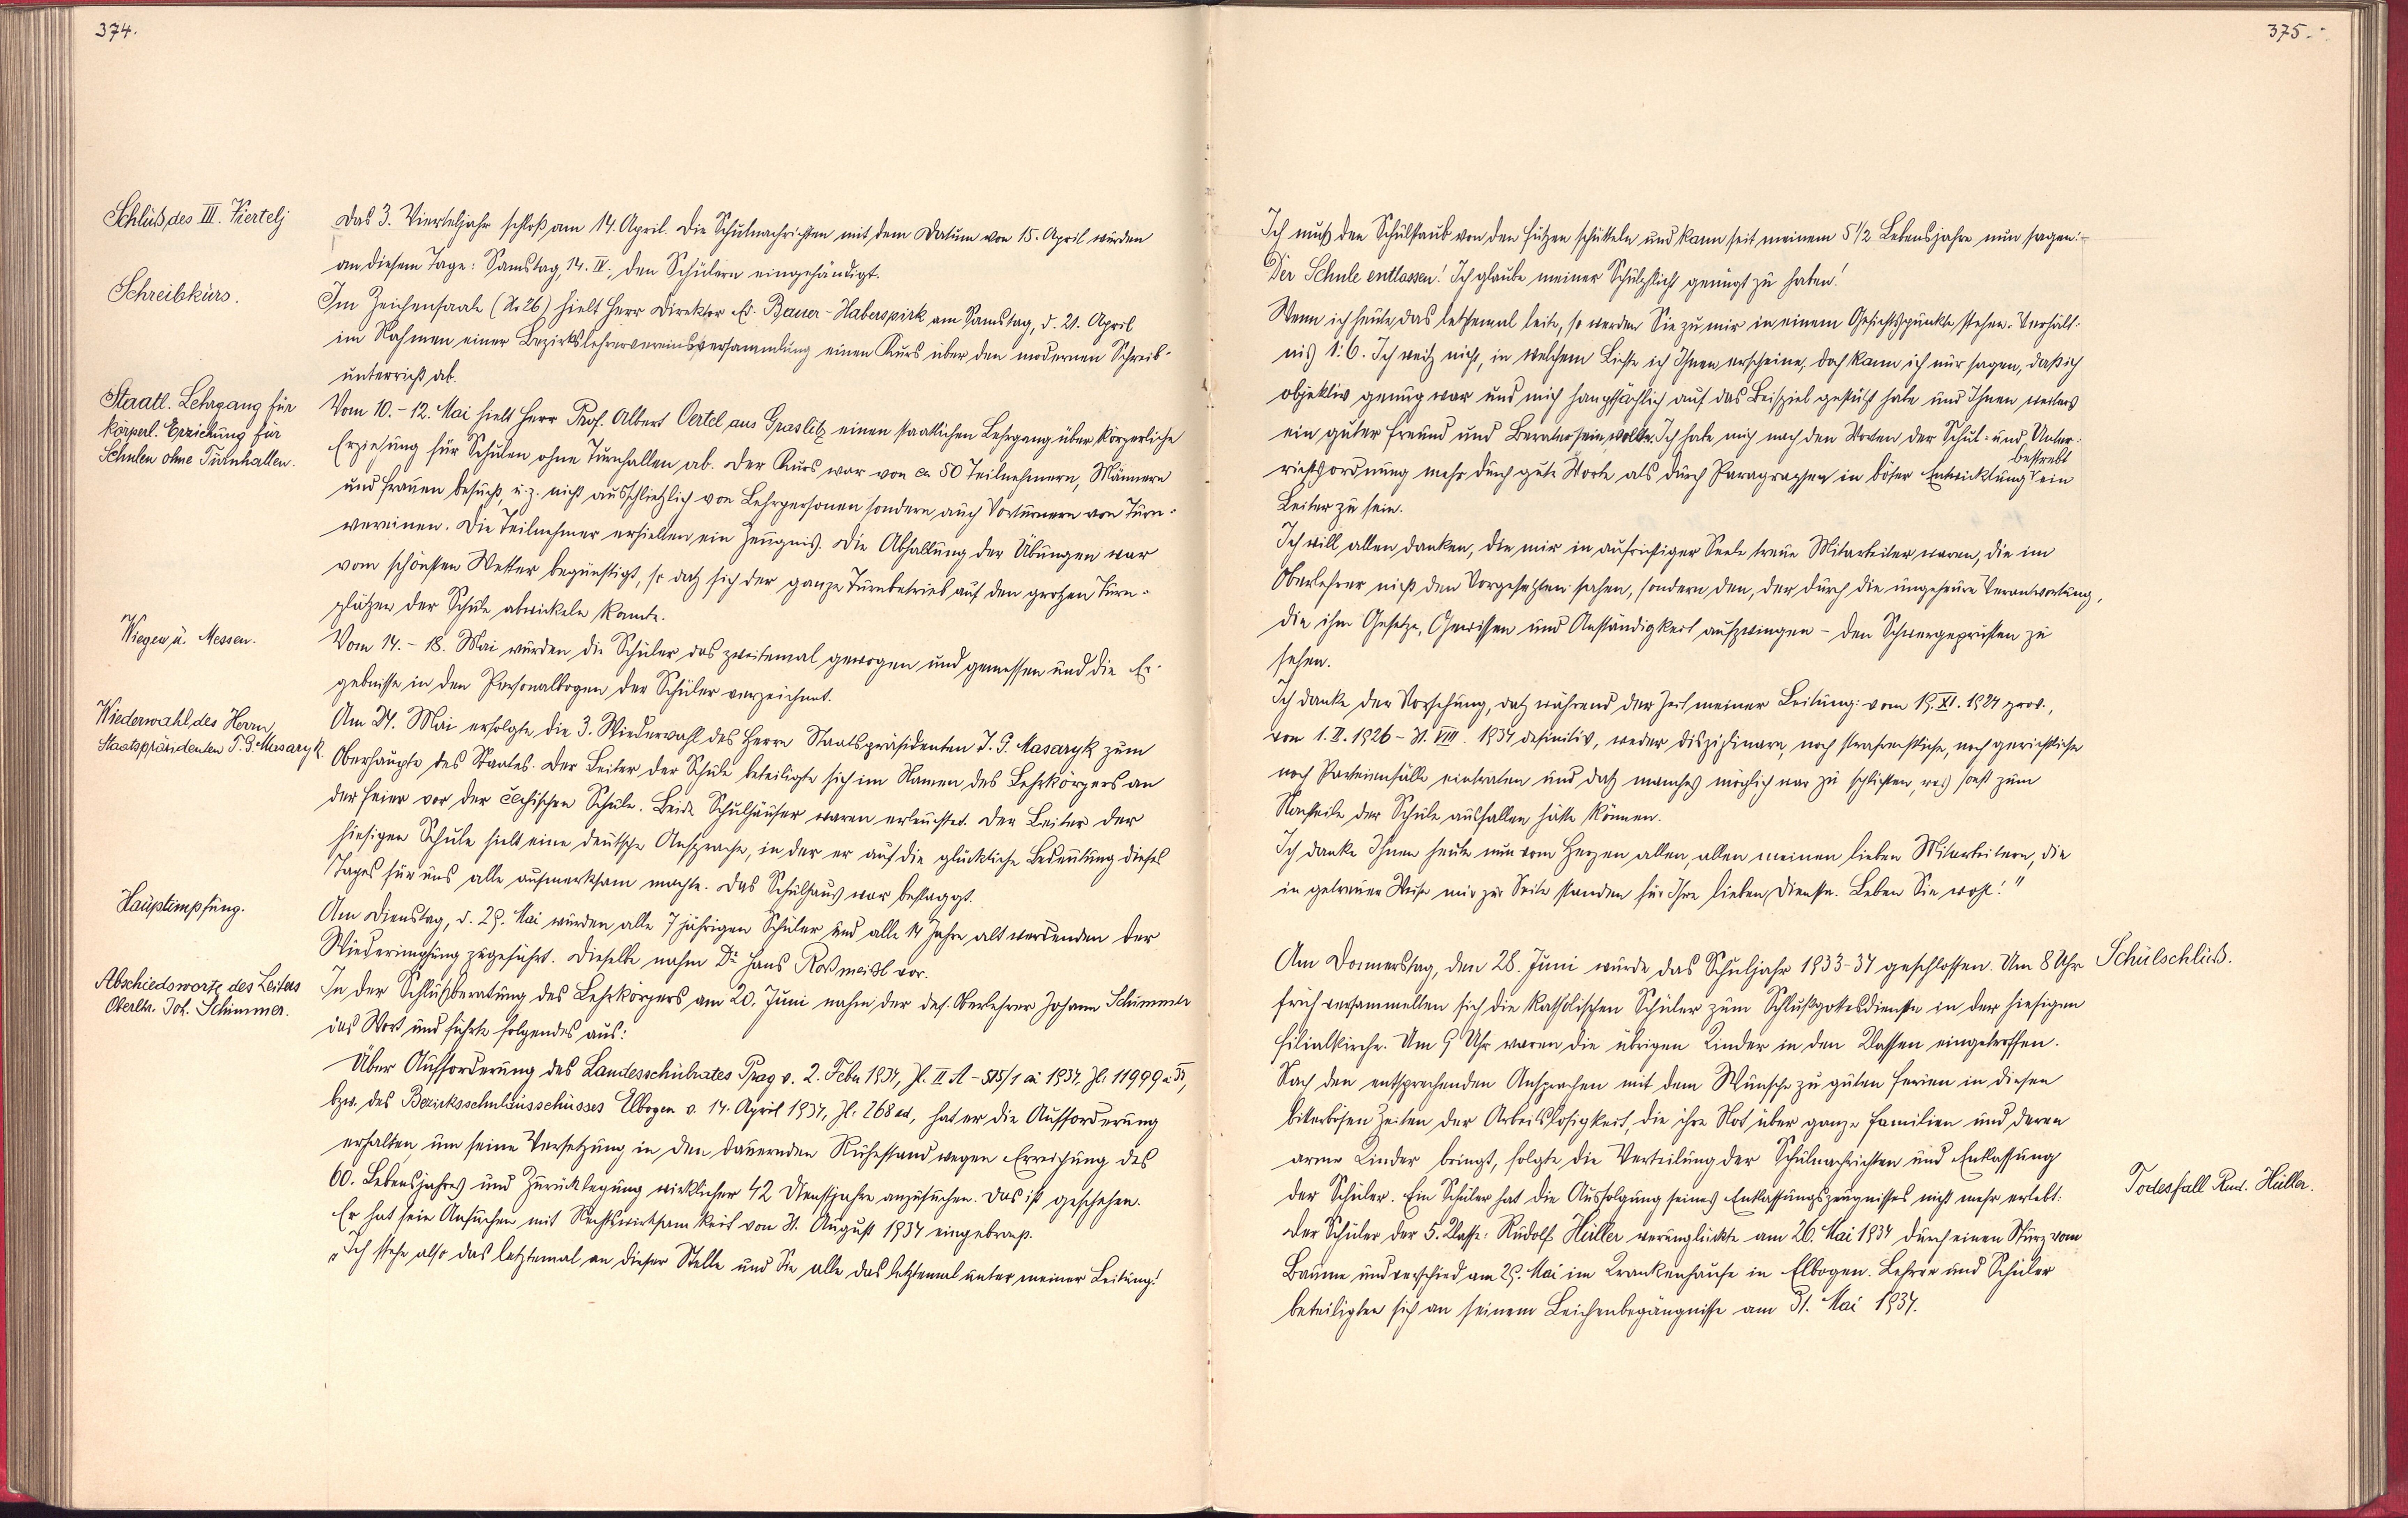 374.
Schluß des III. Viertelj
Das 3. Vierteljahr schloß am 14. April. Die Schulnachrichten mit dem Datum von 15. April wurden
an diesem Tage: Samstag, 14. IV., den Schülern eingehändigt.
Schreibkurs.
Im Zeichensaale (N: 26) hielt Herr Direktor Ed. Bauer-Haberspirk am Samstag, d. 21. April
im Rahmen einer Bezirkslehrervereinsversammlung einen Kurs über den modernen Schreib-
unterricht ab.
Staatl. Lehrgang für
körperl. Erziehung für
Schulen ohne Turnhallen.
Vom 10.-12. Mai hielt Herr Prof. Albert Oertel aus Graslitz einen staatlichen Lehrgang über körperliche
Erziehung für Schulen ohne Turnhallen ab. Der Kurs war von ca 50 Teilnehmern, Männern
und Frauen besucht, u. z. nicht ausschließlich von Lehrpersonen sondern auch Vorturnern von Turn-
vereinen. Die Teilnehmer erhielten ein Zeugnis. Die Abhaltung der Übungen war
vom schönsten Wetter begünstigt, so daß sich der ganze Turnbetrieb auf den großen Turn-
plätzen der Schule abwickeln konnte.
Wiegen u. Messen.
Vom 14.-18. Mai wurden die Schüler das zweitemal gewogen und gemessen und die Er-
gebnisse in den Personalbogen der Schüler verzeichnet.
Wiederwahl des Herrn
Staatspräsidenten T. G. Masaryk.
Am 24. Mai erfolgte die 3. Wiederwahl des Herrn Staatspräsidenten T. G. Masaryk zum
Oberhaupte des Staates. Der Leiter der Schule beteiligte sich im Namen des Lehrkörpers an
der Feier vor der čechischen Schule. Beide Schulhäuser waren erleuchtet. Der Leiter der
hiesigen Schule hielt eine deutsche Ansprache, in der er auf die glückliche Bedeutung dieses
Tages für uns alle aufmerksam machte. Das Schulhaus war beflaggt.
Hauptimpfung.
Am Dienstag, d. 29. Mai wurden alle 7 jährigen Schüler und alle 14 Jahre alt werdenden der
Wiederimpfung zugeführt. Dieselbe nahm Dr Hans Roßmeißl vor.
Abschiedsworte des Leiters
Oberlhr. Joh. Schimmer.
In der Schlußberatung des Lehrkörpers am 20. Juni nahm der def. Oberlehrer Johann Schimmer
das Wort und führte folgendes aus:
Über Aufforderung des Landesschulrates Prag v. 2. Feber 1934, Zl. II A - 515/1 ai 1934, Zl: 11999 ai 33,
bzw. des Bezirksschulausschusses Elbogen v. 14. April 1934, Zl. 268 ad, hat er die Aufforderung
erhalten um seine Versetzung in den dauernden Ruhestand wegen Erreichung des
60. Lebensjahres und Zurücklegung wirklicher 42 Dienstjahre anzusuchen. Das ist geschehen.
Er hat sein Ansuchen mit Rechtswirksamkeit von 31. August 1934 eingebracht.
„Ich stehe also das letztemal an dieser Stelle und Sie alle das letztemal unter meiner Leitung!
375.
Ich muß den Schulstaub von den Füßen schütteln und kann seit meinem 5 1/2 Lebensjahre nun sagen:-
Der Schule entlassen! Ich glaube meiner Schulpflicht genügt zu haben!
Wenn ich heute das letztemal leite, so werden Sie zu mir in einem Gesichtspunkte stehen. Verhält-
nis 1:6. Ich weiß nicht, in welchem Lichte ich Ihnen erscheine, doch kann ich nur sagen, daß ich
objektiv genug war und mich hauptsächlich auf das Beispiel gestützt habe und Ihnen weiters
ein guter Freund und Berater sein wollte. Ich habe mich nach den Worten der Schul- und Unter-
richtsordnung mehr durch gute Worte als durch Paragraphen in böser Entwicklung bestrebt ein
Leiter zu sein.
Ich will allen danken, die mir in aufrichtiger Seele treue Mitarbeiter waren, die im
Oberlehrer nicht den Vorgesetzten sahen, sondern den, der durch die ungeheure Verantwortung,
die ihm Gesetze, Gewissen und Anständigkeit aufzwingen - den Schwergeprüften zu
sehen.
Ich danke der Vorsehung, daß während der Zeit meiner Leitung: vom 19. XI. 1924 prov.,
von 1. II. 1926 - 31. VIII. 1934 definitiv, weder disziplinare, noch strafrechtliche, noch gerichtliche
noch Parteienfälle eintraten und daß manches möglich war zu schlichten, was sonst zum
Nachteile der Schule ausfallen hätte können.
Ich danke Ihnen heute nun vom Herzen allen, allen meinen lieben Mitarbeitern, die
in getreuer Weise mir zur Seite standen für Ihre lieben Dienste. Leben Sie wohl!"
Schulschluß.
Am Donnerstag, den 28. Juni wurde das Schuljahr 1933-34 geschlossen. Um 8 Uhr
früh versammelten sich die katholischen Schüler zum Schlußgottesdienste in der hiesigen
Filialkirche. Um 9 Uhr waren die übrigen Kinder in den Klassen eingetroffen.
Nach den entsprechenden Ansprachen mit dem Wunsche zu guten Ferien in diesen
bitterbösen Zeiten der Arbeitslosigkeit, die ihre Not über ganze Familien und deren
arme Kinder bringt, folgte die Verteilung der Schulnachrichten und Entlassung
Todesfall Rud. Hüller.
der Schüler. Ein Schüler hat die Ausfolgung seines Entlassungszeugnisses nicht mehr erlebt:
Der Schüler der 5. Klasse: Rudolf Hüller verunglückte am 26. Mai 1934 durch einen Sturz vom
Baume und verschied am 29. Mai im Krankenhause in Elbogen. Lehrer und Schüler
beteiligten sich an seinem Leichenbegängnisse am 31. Mai 1934.